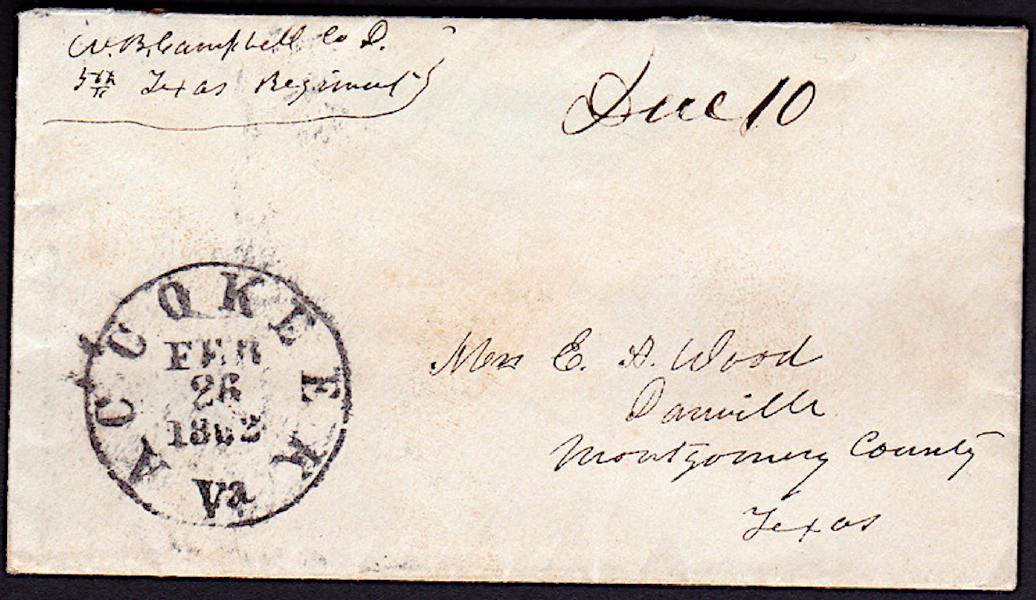 W. B. Campbell Co D.
5th Texas Regiment
Due 10
ACCOKEEK
FEB
26
1862
Va
Mrs E. A. Wood
Danville
Montgomery County
Texas